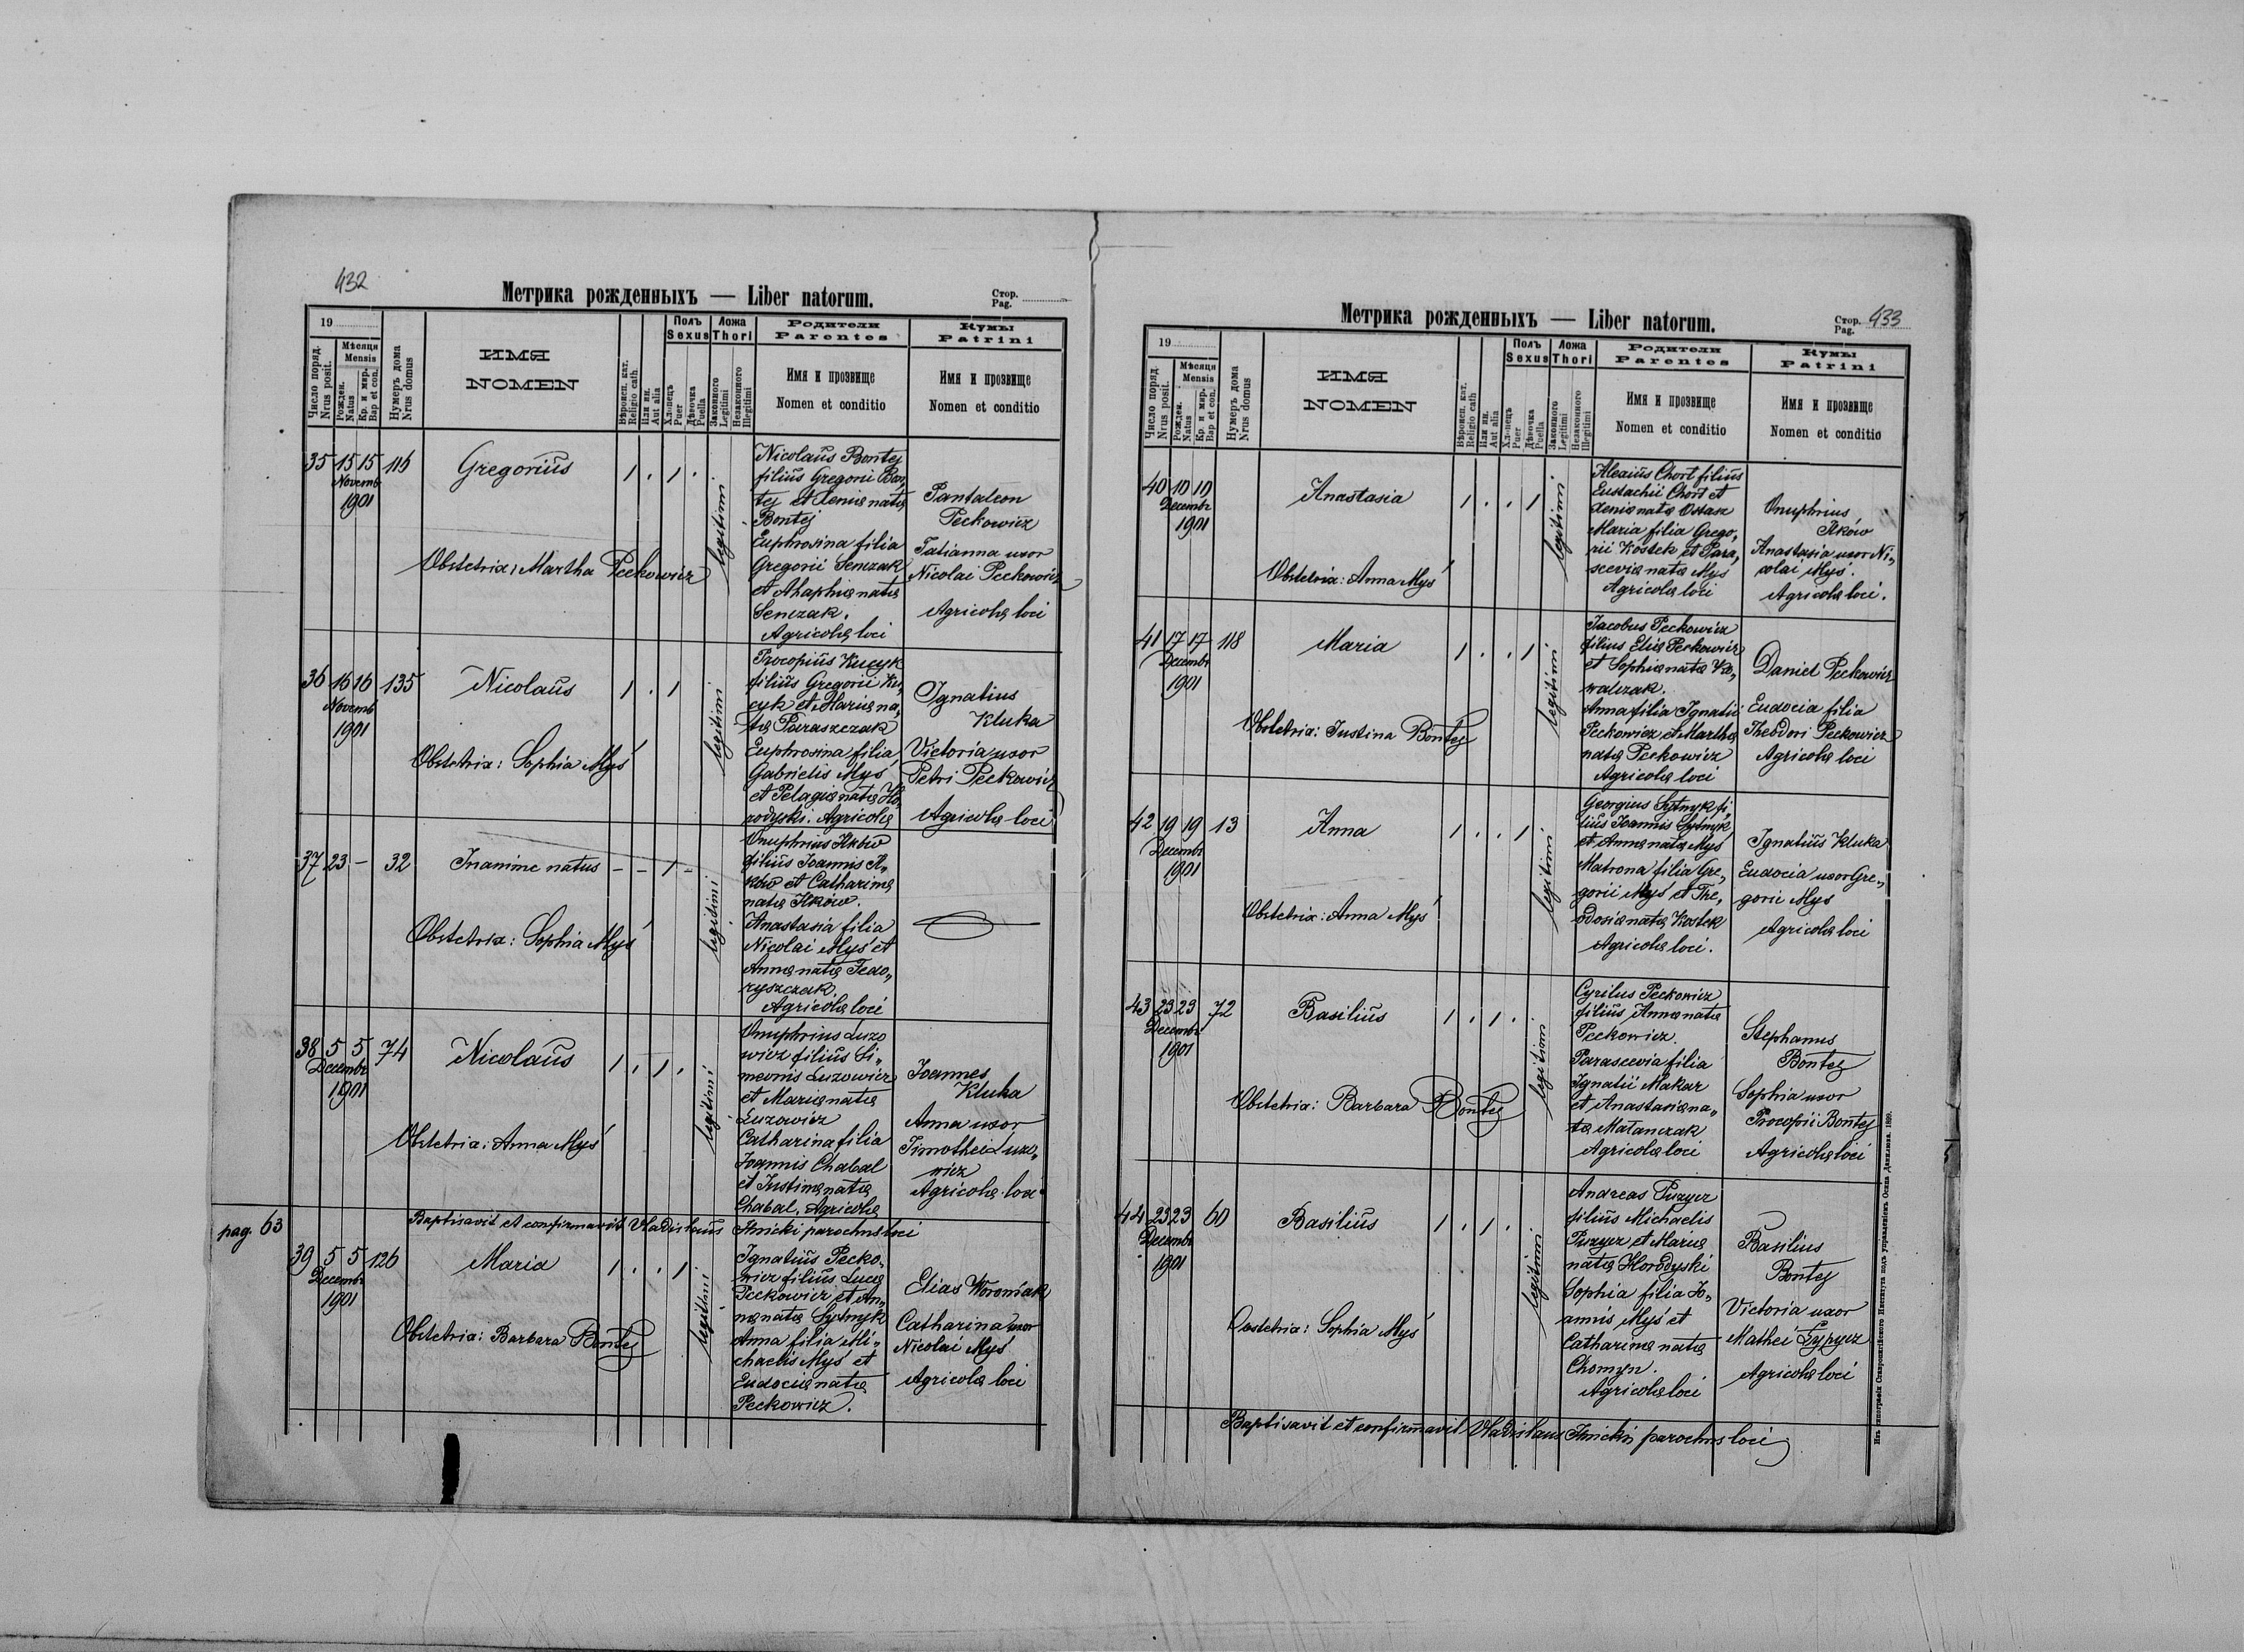 432
Метрика рожденныхъ — Liber natorum.
Стор.
Pag.
19
Число поряд.
Nrus posit.
Мѣсяця
Mensis
Рожден.
Natus
Кр. и мир.
Bap et con.
Нумеръ дома
Nrus domus
ИМЯ
NOMEN
Вѣроисп. кат.
Religio cath.
Или ин.
Aut alia
Полъ
Sexus
Хлопецъ
Puer
Дѣвочка
Puella
Ложа
Thori
Законного
Legitimi
Незаконного
Illegitimi
Родители
Parentes
Имя и прозвище
Nomen et conditio
Кумы
Patrini
Имя и прозвище
Nomen et conditio
35 15 15 116 Gregorius 1 . 1 .
Novemb
1901
Obstetrix: Martha Peckowicz
legitimi
Nicolaus Bontej
filius Gregorii Bon„
tej et Xeniæ natæ
Bontej
Euphrosina filia
Gregorii Senczak
et Ahaphiæ natæ
Senczak.
Agricolæ loci
Pantaleon
Peckowicz
Tatianna uxor
Nicolai Peckowicz
Agricolæ loci
36 16 16 135 Nicolaus 1 . 1
Novemb
1901
Obstetrix: Sophia Myś
legitimi
Procopius Kucyk
filius Gregorii Ku„
cyk et Mariæ na„
tæ Paraszczak
Euphrosina filia
Gabrielis Myś
et Pelagiæ natæ Ho„
rodyski. Agricolæ
Ignatius
Kluka
Victoria uxor
Petri Peckowicz
Agricolæ loci
37 23 — 32 Inanime natus - - 1 -
Obstetrix: Sophia Myś
legitimi
Onuphrius Ilków
filius Joannis Il„
ków et Catharinæ
natæ Ilków.
Anastasia filia
Nicolai Myś et
Annæ natæ Fedo„
ryszczak.
Agricolæ loci
38 5 5 74 Nicolaus 1 . 1 .
Decembr
1901
Obstetrix: Anna Myś
legitimi
Onuphrius Luzo
wicz filius Si„
meonis Luzowicz
et Mariæ natæ
Luzowicz
Catharina filia
Joannis Chabal
et Justinæ natæ
Chabal. Agricolæ
Joannes
Kluka
Anna uxor
Timothei Luzo„
wicz
Agricolæ loci
pag. 63
Baptisavit et confirmavit Vladislaus Ilnicki parochus loci
39 5 5 126 Maria 1 . . 1
Decembr
1901
Obstetrix: Barbara Bontej
legitimi
Ignatius Pecko„
wicz filius Lucæ
Peckowicz et An„
næ natæ Sytnyk
Anna filia Mi„
chaelis Myś et
Eudociæ natæ
Peckowicz.
Elias Woroniak
Catharina uxor
Nicolai Myś
Agricolæ loci
Метрика рожденныхъ — Liber natorum.
Стор.
Pag.
433
19
Число поряд.
Nrus posit.
Мѣсяця
Mensis
Рожден.
Natus
Кр. и мир.
Bap et con.
Нумеръ дома
Nrus domus
ИМЯ
NOMEN
Вѣроисп. кат.
Religio cath
Или ин.
Aut alia
Полъ
Sexus
Хлопецъ
Puer
Дѣвочка
Puella
Ложа
Thori
Законного
Legitimi
Незаконного
Illegitimi
Родители
Parentes
Имя и прозвище
Nomen et conditio
Кумы
Patrini
Имя и прозвище
Nomen et conditio
40 10 10 Anastasia 1 . . 1
Decembr
1901
Obstetrix: Anna Myś
legitimi
Alexius Chort filius
Eustachii Chort et
Xeniæ natæ Ostasz
Maria filia Grego„
rii Kostek et Para„
sceviæ natæ Myś
Agricolæ loci
Onuphrius
Ilków
Anastasia uxor Ni„
colai Myś.
Agricolæ loci.
41 17 17 118 Maria 1 . . 1
Decembr
1901
Obstetrix: Justina Bontej
legitimi
Jacobus Peckowicz
filius Eliæ Peckowicz
et Sophiæ natæ Ko„
walczak.
Anna filia Ignatii
Peckowicz et Marthæ
natæ Peckowicz
Agricolæ loci
Daniel Peckowicz
Eudocia filia
Theodori Peckowicz
Agricolæ loci
42 19 19 13 Anna 1 . . 1
Decembr
1901
Obstetrix: Anna Myś
legitimi
Georgius Sytnyk fi„
lius Joannis Sytnyk
et Annæ natæ Myś
Matrona filia Gre„
gorii Myś et The„
odosiæ natæ Kostek
Agricolæ loci.
Ignatius Kluka
Eudocia uxor Gre„
gorii Myś
Agricolæ loci
43 23 23 72 Basilius 1 . 1 .
Decembr
1901
Obstetrix: Barbara Bontej
legitimi
Cyrilus Peckowicz
filius Annæ natæ
Peckowicz.
Parascevia filia
Ignatii Makar
et Anastasiæ na„
tæ Matanczak
Agricolæ loci
Stephanus
Bontej
Sophia uxor
Procopii Bontej
Agricolæ loci
44 23 23 60 Basilius 1 . 1 .
Decembr
1901
Obstetrix: Sophia Myś
legitimi
Andreas Puzycz
filius Michaelis
Puzycz et Mariæ
natæ Horodyski
Sophia filia Jo„
annis Myś et
Catharinæ natæ
Chomyn.
Agricolæ loci
Basilius
Bontej
Victoria uxor
Mathei
Agricolæ loci
Baptisavit et confirmavit Vladislaus Ilnicki parochus loci
Изъ типографіи Ставропигійского Института подъ управленіемъ Осипа Данилюка. 1899.